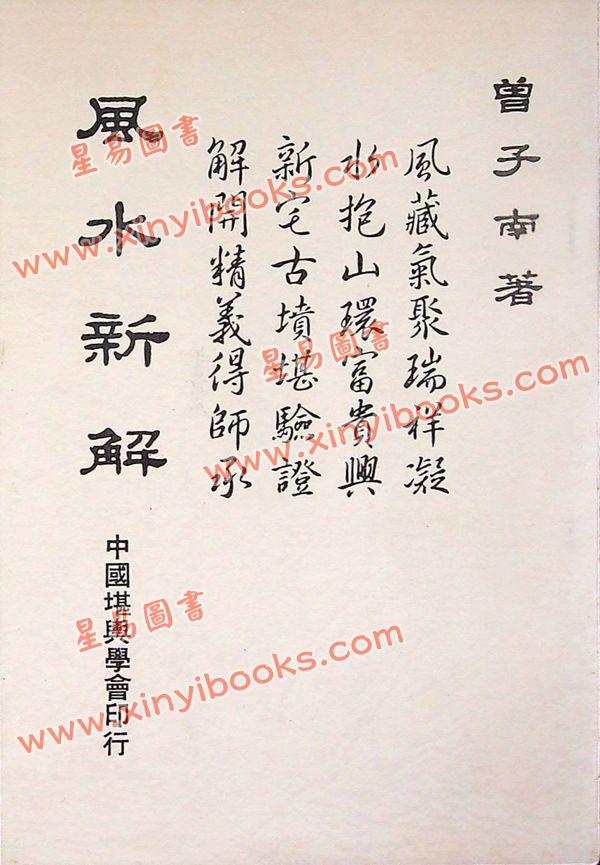 曾子南著
風藏氣聚瑞祥凝
水抱山環富貴興
新宅古墳堪驗證
解開精義得師承
風水新解
中國堪輿學會印行
星易圖書
www.xinyibooks.com
星易圖書
www.xinyibooks.com
星易圖書
www.xinyibooks.com